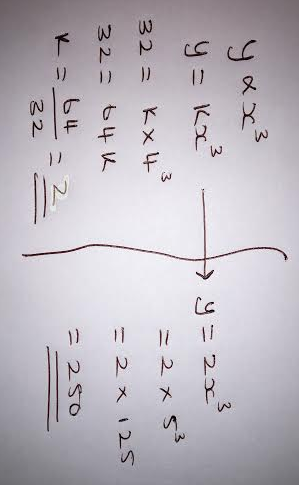 y ∝ x³
y = Kx³
32 = K × 4³
32 = 64K
K = 64/32 = 2
y = 2x³
= 2 × 5³
= 2 × 125
= 250